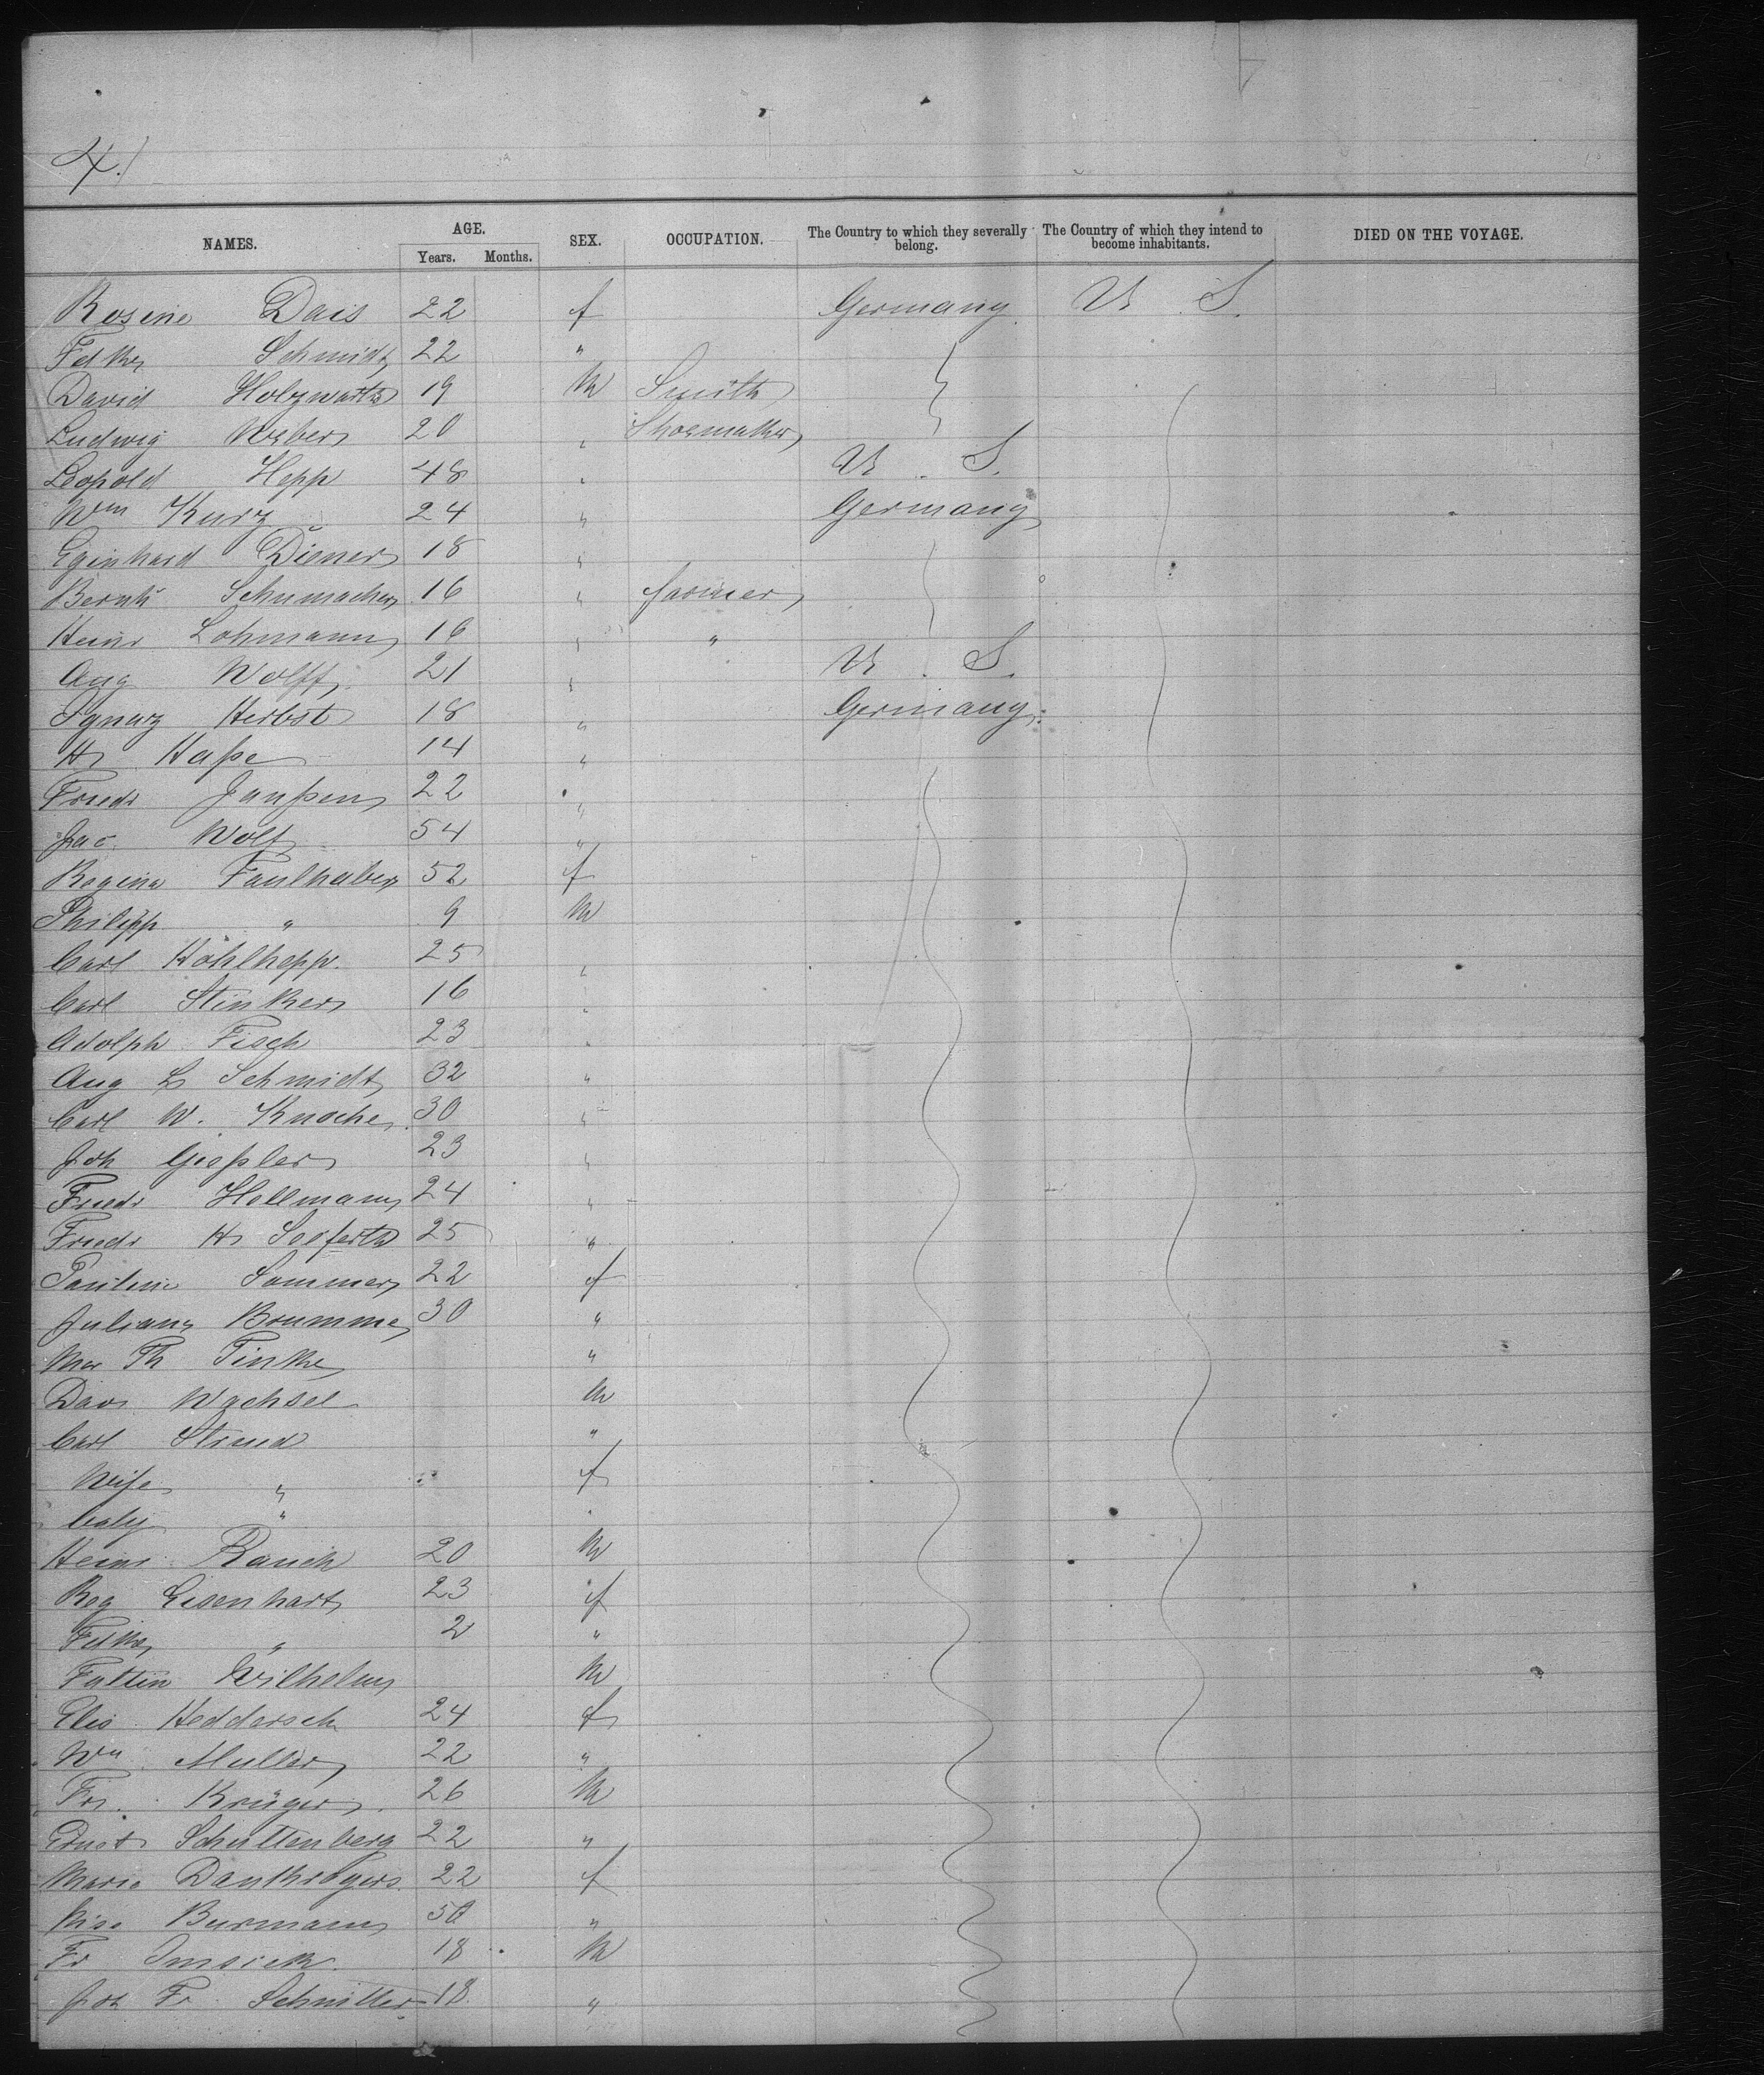 4.
NAMES. AGE. SEX. OCCUPATION. The Country to which they severally belong. The Country of which they intend to become inhabitants. DIED ON THE VOYAGE.
Years. Months.
Rosine Dais 22 f Germany U S.
Schmidt 22 "
David Holzwarth 19 M Smith
Ludwig Weber 20 " Shoemaker
Leopold Hepp 48 " U. S.
Wm Kurz 24 " Germany
Eginhard Diener 18 "
Schumacher 16 " farmer
Heinr Lohmann 16 " "
Aug Wolff 21 " U. S.
Ignaz Herbst 18 " Germany
H Haße 14 "
Friedr Janßen 22 "
Jac. Wolf 54 "
Regina Faulhaber 52 f
Philipp " 9 M
Carl Kohlhepp 25 "
Carl Stinker 16 "
Adolph Fisch 23 "
Aug L Schmidt 32 "
Carl W. Knoche 30 "
Joh Gießler 23 "
Friedr Hollmann 24 "
Friedr H Seeferth 25 "
Pauline Sommer 22 f
Juliana Brumme 30 "
Th Tinke "
Dav Wachsel M
Carl "
Wife " f
baby "
Heinr Rauch 20 M
Reg Eisenhart 23 f
" 2 "
Wilhelm M
Elis Heddersch 24 f
Wm Muller 22 "
Fr. Krüger 26 M
Ernst Schuttenberg 22 "
Marie 22 f
Burmann 50 "
Fr 18 M
Joh Fr. Schmitter 18 "